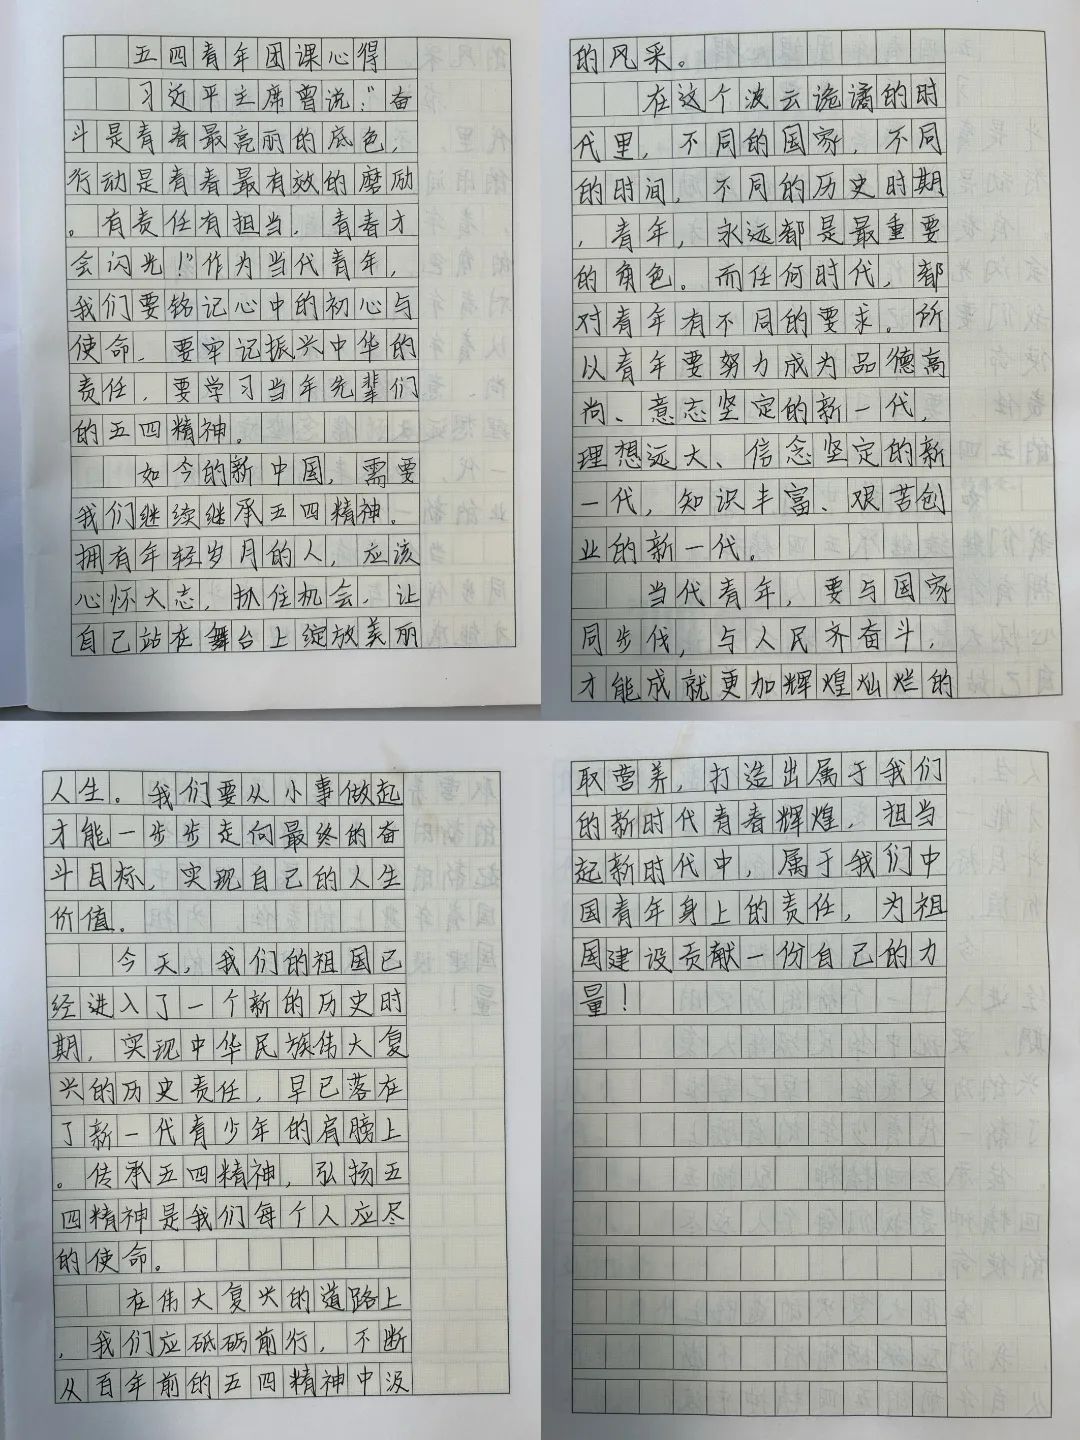 五四青年团课心得
习近平主席曾说:“奋
斗是青春最亮丽的底色,
行动是青春最有效的磨励
。有责任有担当,青春才
会闪光!”作为当代青年,
我们要铭记心中的初心与
使命、要牢记振兴中华的
责任,要学习当年先辈们
的五四精神。
如今的新中国,需要
我们继续继承五四精神。
拥有年轻岁月的人,应该
心怀大志,抓住机会,让
自己站在舞台上绽放美丽
的风采。
在这个波云诡谲的时
代里,不同的国家,不同
的时间,不同的历史时期
,青年,永远都是最重要
的角色。而任何时代,都
对青年有不同的要求。所
以青年要努力成为品德高
尚、意志坚定的新一代,
理想远大、信念坚定的新
一代,知识丰富、艰苦创
业的新一代。
当代青年,要与国家
同步伐,与人民齐奋斗,
才能成就更加辉煌灿烂的
人生。我们要从小事做起
才能一步步走向最终的奋
斗目标,实现自己的人生
价值。
今天,我们的祖国已
经进入了一个新的历史时
期,实现中华民族伟大复
兴的历史责任,早已落在
了新一代青少年的肩膀上
。传承五四精神,弘扬五
四精神是我们每个人应尽
的使命。
在伟大复兴的道路上
,我们应砥砺前行,不断
从百年前的五四精神中汲
取营养,打造出属于我们
的新时代青春辉煌,担当
起新时代中,属于我们中
国青年身上的责任,为祖
国建设贡献一份自己的力
量!